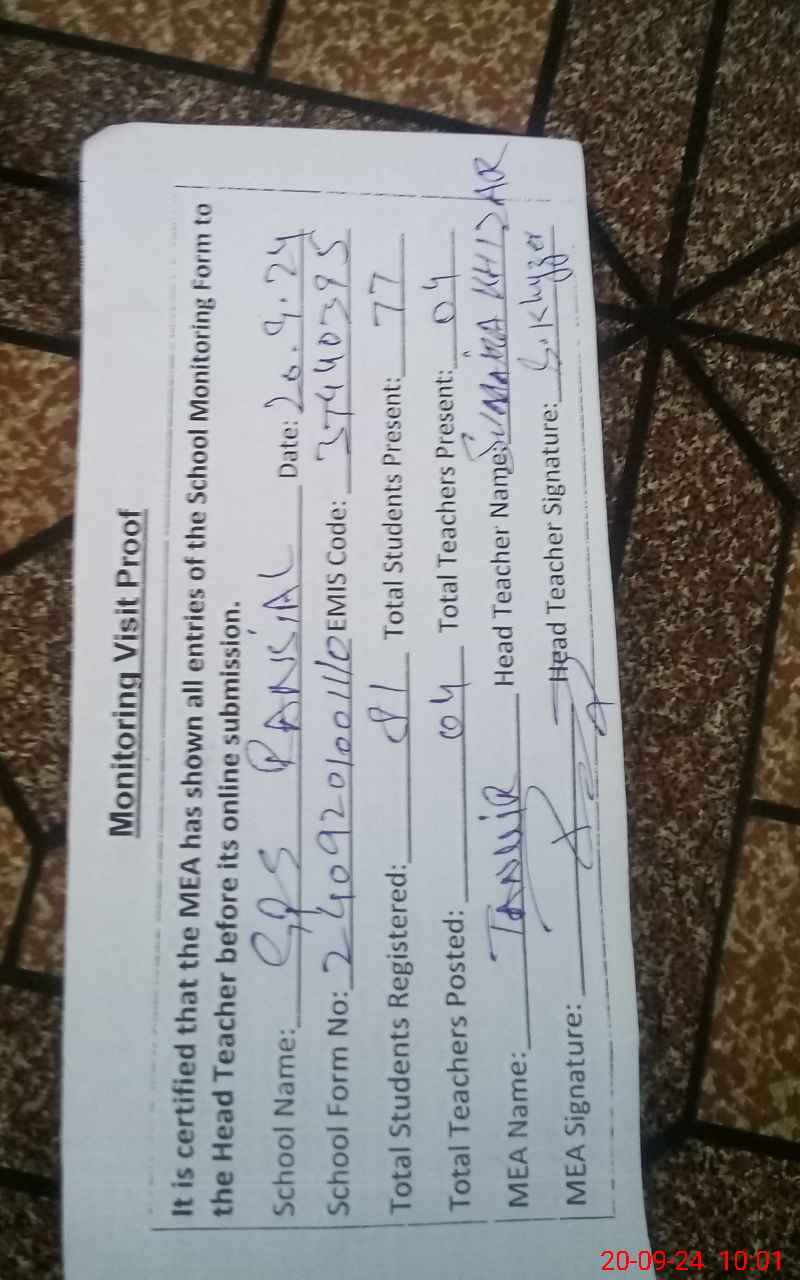 Monitoring Visit Proof
It is certified that the MEA has shown all entries of the School Monitoring Form to
the Head Teacher before its online submission.
School Name: GPS PANSIAL Date: 20.9.24
School Form No: 2409201001110 EMIS Code: 37440395
Total Students Registered: 81 Total Students Present: 77
Total Teachers Posted: 04 Total Teachers Present: 04
MEA Name: TANVIR Head Teacher Name:
MEA Signature: Head Teacher Signature: S.Khyzer
20-09-24 10:01